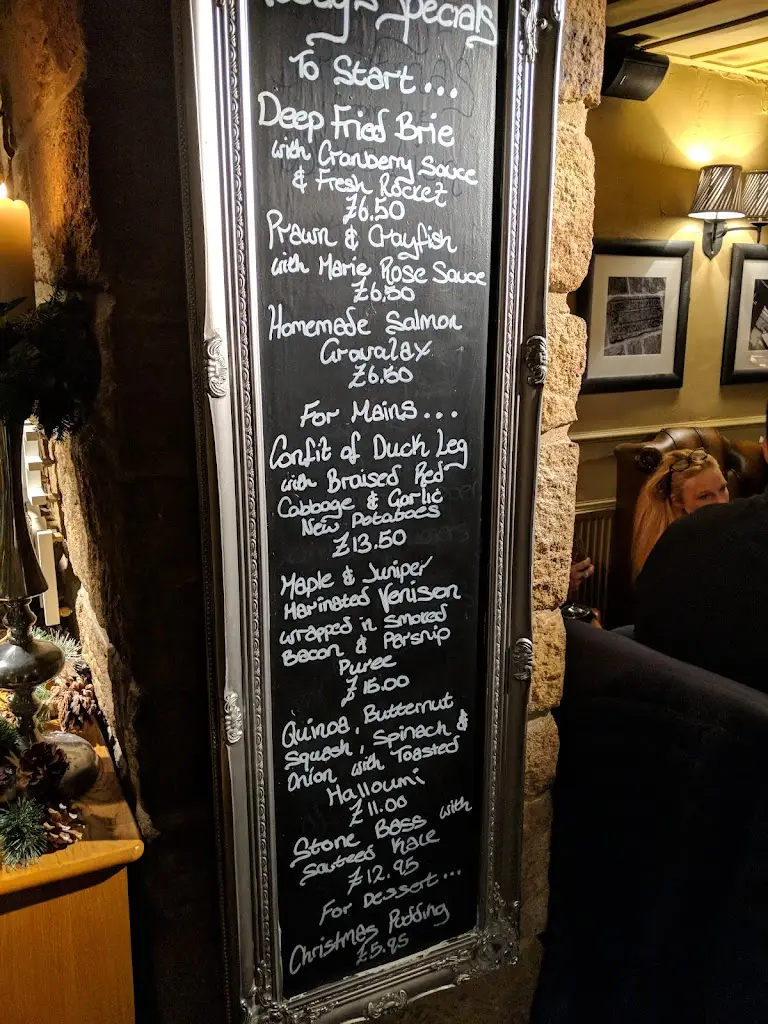 Today's Specials
To Start...
Deep Fried Brie
with Cranberry Sauce
& Fresh Rocket
£6.50
Prawn & Crayfish
with Marie Rose Sauce
£6.50
Homemade Salmon
Gravalax
£6.50
For Mains...
Confit of Duck Leg
with Braised Red
Cabbage & Garlic
New Potatoes
£13.50
Maple & Juniper
Marinated Venison
wrapped in smoked
Bacon & Parsnip
Puree
£15.00
Quinoa, Butternut
Squash, Spinach &
Onion with Toasted
Halloumi
£11.00
Stone Bass with
Sauteed Kale
£12.95
For Dessert...
Christmas Pudding
£5.95